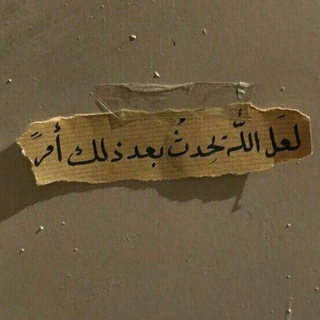 لعل اللَّه يحدثُ بعد ذلك أمرً